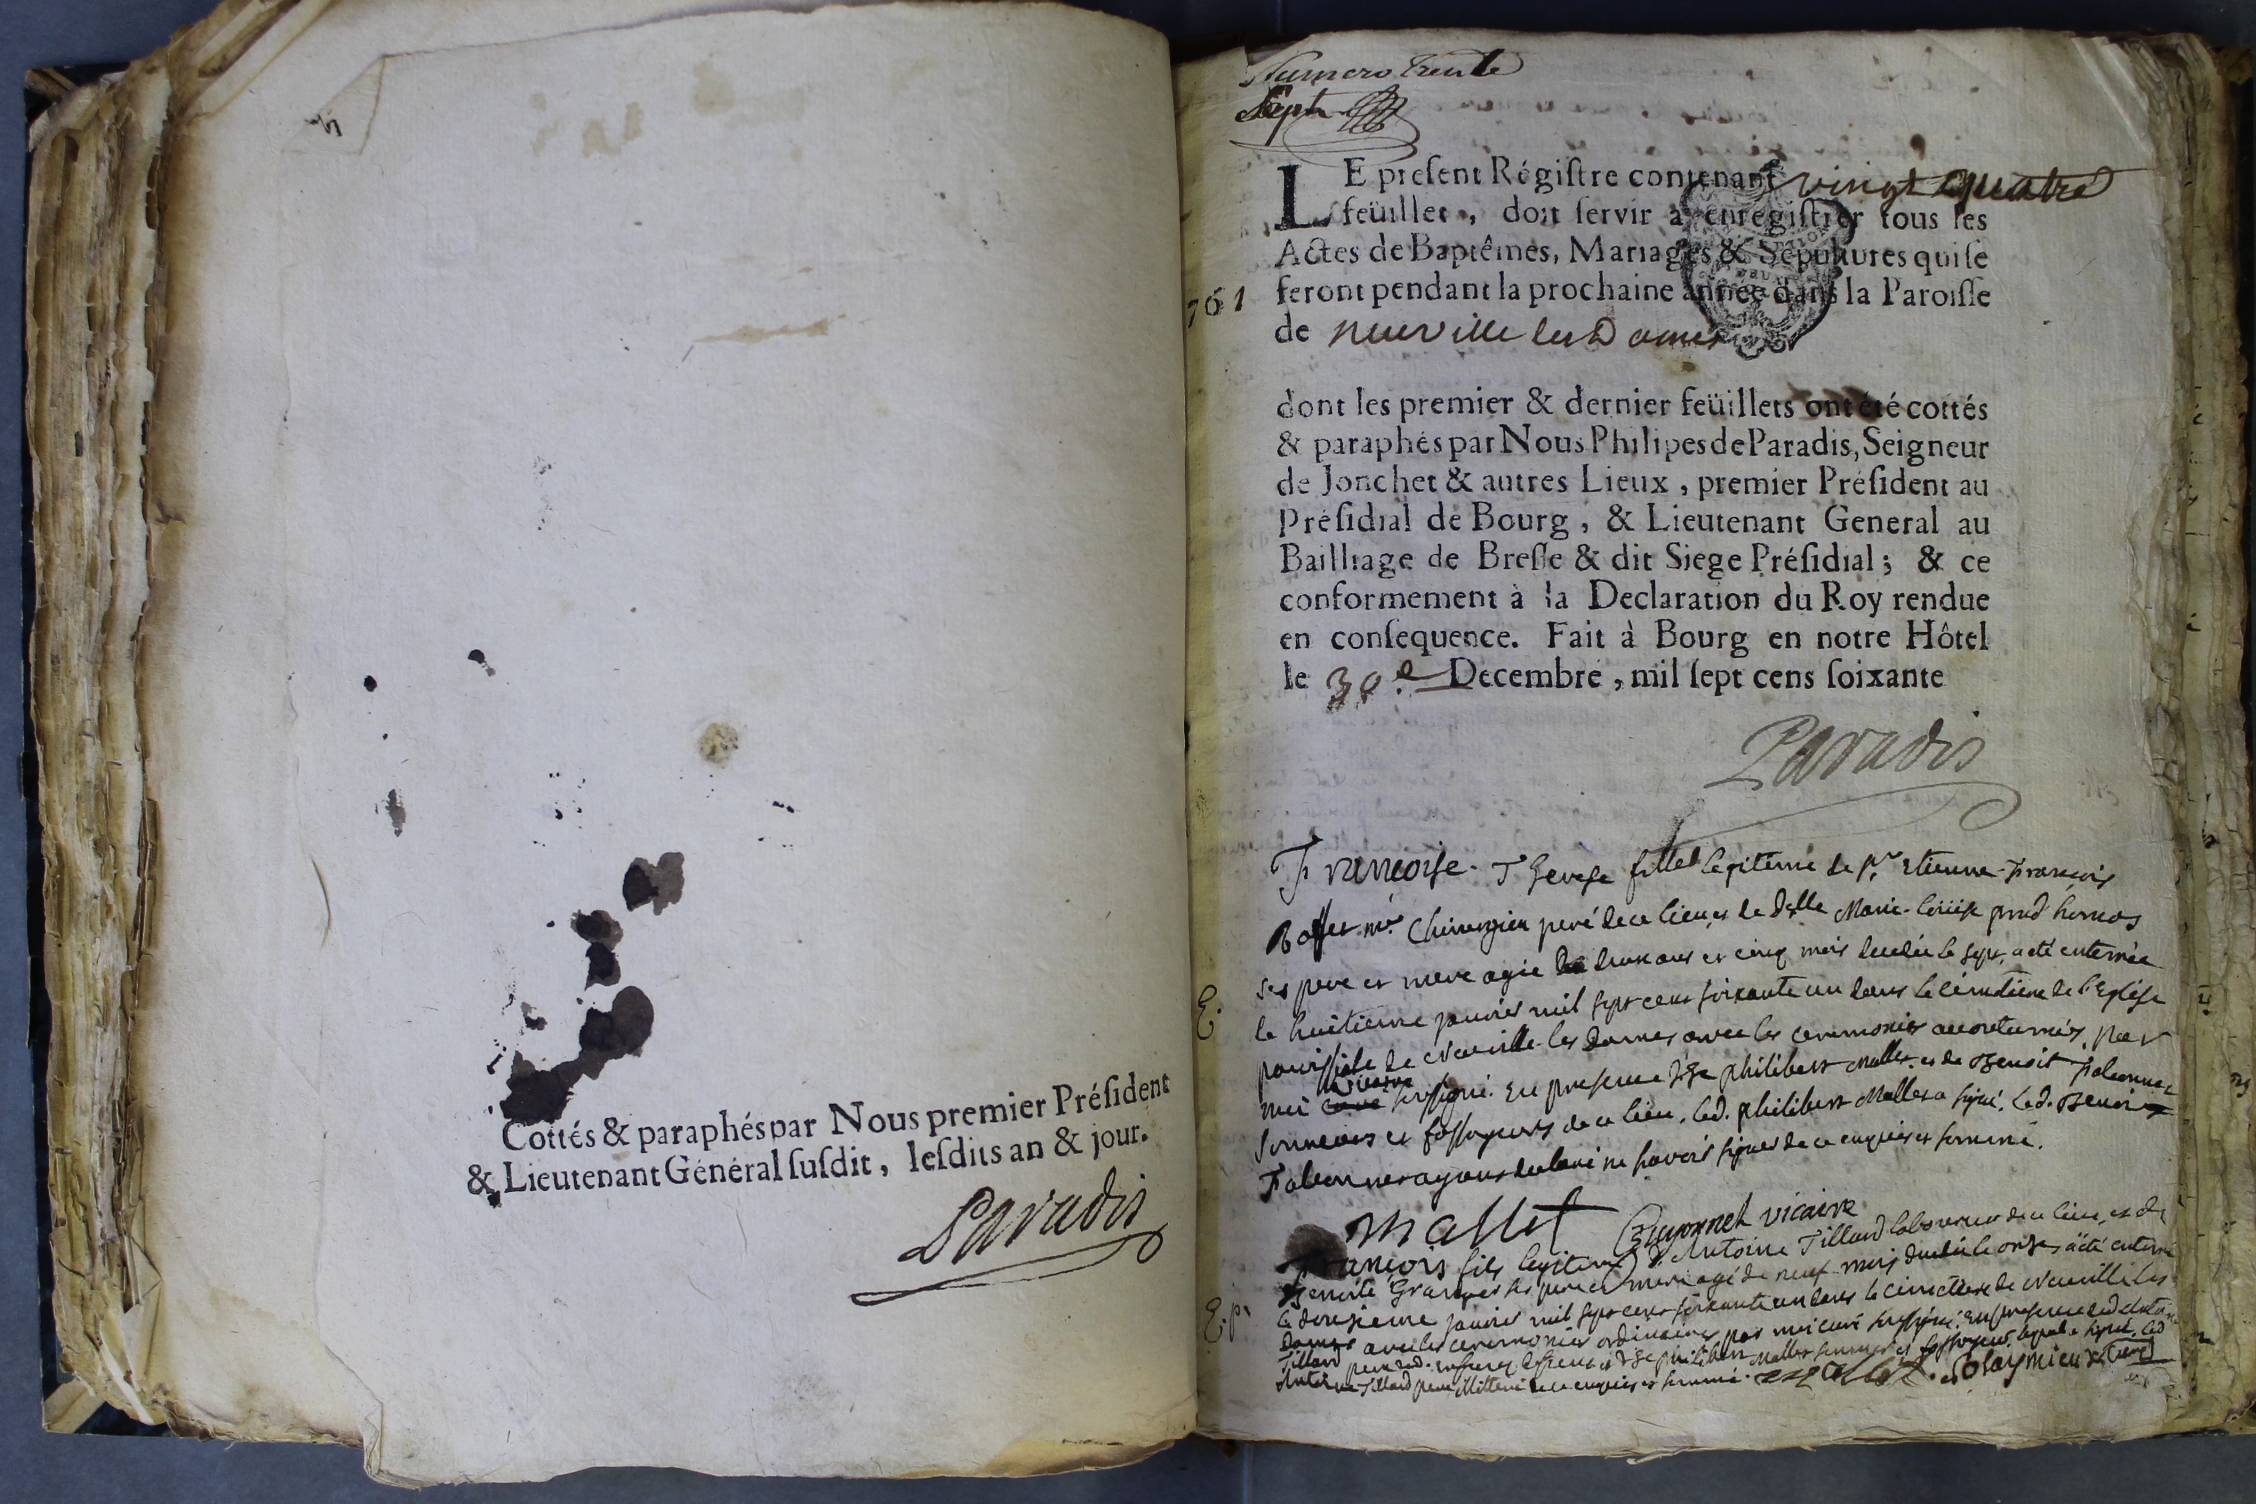 Cottés & paraphés par Nous premier Préſident
& Lieutenant Général ſuſdit, leſdits an & jour.
Paradis
Numero trente
Sept
LE preſent Régiſtre contenant vingt quatre
feüillet, doit ſervir à enregiſtrer tous les
Actes de Baptêmes, Mariages & Sepultures qui ſe
feront pendant la prochaine année dans la Paroiſſe
761
de neuville les Dames
dont les premier & dernier feüillets ont été cottés
& paraphés par Nous Philipes de Paradis, Seigneur
de Jonchet & autres Lieux, premier Préſident au
Préſidial de Bourg, & Lieutenant General au
Bailliage de Breſſe & dit Siege Préſidial; & ce
conformement à la Declaration du Roy rendue
en conſequence. Fait à Bourg en notre Hôtel
le 30e Decembre, mil ſept cens ſoixante
Paradis
Françoise Therese fille legitime de sr Etienne françois
mre Chirurgien juré de ce lieu et de Delle Marie Loüise prud homos
ses pere et mere agée de deux ans et cinq mois decedée le sept, a eté enterrée
E.
le huitieme janvier mil sept cent soixante un dans le cimetiere de l'Eglise
paroissiale de Neuville les dames avec les ceremonies accoutumées, par
moi vicaire soussigné. En presence de philibert mallet et de Benoit
sonneurs et fossoyeurs de ce lieu. led. philibert Mallet a signé. led. Benoit
ayant declaré ne savoir signer de ce enquis et sommé.
Mallet Guyonnet vicaire
françois fils legitime d'Antoine Tillard laboureur de ce lieu, et de
Benoite ses pere et mere agé de neuf mois decedé le onze, a eté enterré
E. p.
le douzieme janvier mil sept cent soixante un dans le cimetiere de Neuville les
Dames avec les ceremonies ordinaires par moi curé soussigné. En presence
Tillard pere et de philibert Mallet sonneur et fossoyeur, lequel a signé, led
Antoine Tillard pere illitteré de ce enquis et sommé. Mallet. curé